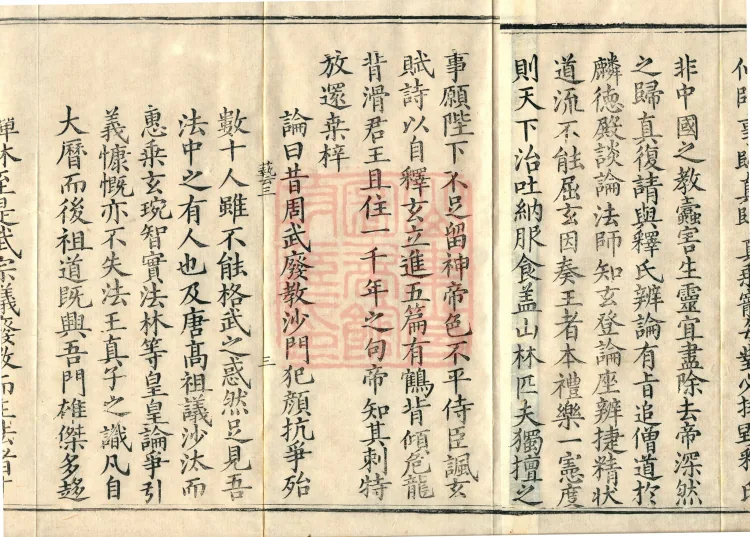 非中國之教蠹害生靈宜盡除去帝深然
之歸真復請與釋氏辨論有旨追僧道於
麟德殿談論法師知玄登論座辨捷精狀
道流不能屈玄因奏王者本禮樂一憲度
則天下治吐納服食盖山林匹夫獨擅之
事願陛下不足留神帝色不平侍臣諷玄
賦詩以自釋玄立進五篇有鶴背傾危龍
背滑君王且住一千年之句帝知其刺特
放還桒梓
論曰昔周武廢教沙門犯顔抗爭殆
藝三
三
數十人雖不能格武之惑然足見吾
法中之有人也及唐髙祖議沙汰而
惠乘玄琬智實法林等皇皇論爭引
義慷慨亦不失法王真子之識凡自
大曆而後祖道既興吾門雄傑多趍
禪林至是武宗議廢教而主法者